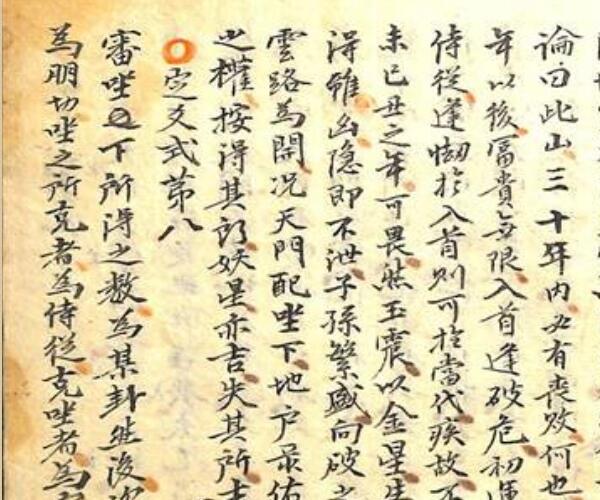 論曰此山三十年內必有喪敗何也
年以後富貴無限入首逢破危初運
侍從逢惱於入首則可於當代疾故不
未己丑之年可畏然玉震以金星生
得雖凶隐即不泄子孫繁盛向破之
雲路為開況天門配坐下地户彔佑
之權按得其所妖星亦吉失其所吉
○定爻式第八
審坐下所得之數為某卦然後次
為朋切坐之所克者為侍從克坐者為